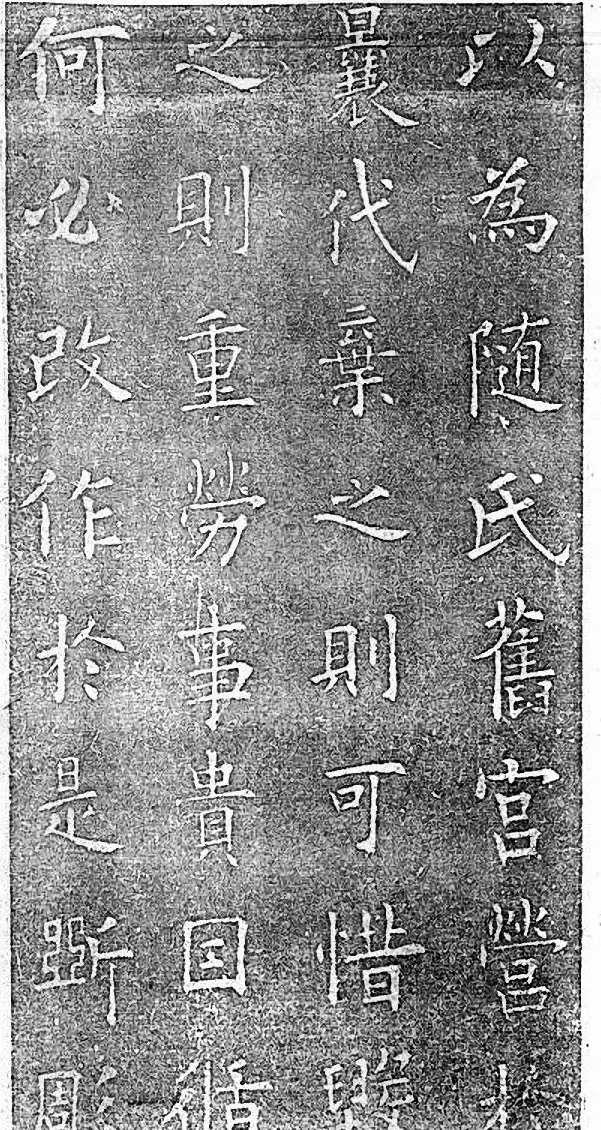 以為隨氏舊宮營於
曩代棄之則可惜毀
之則重勞事貴因循
何必改作於是斲彫